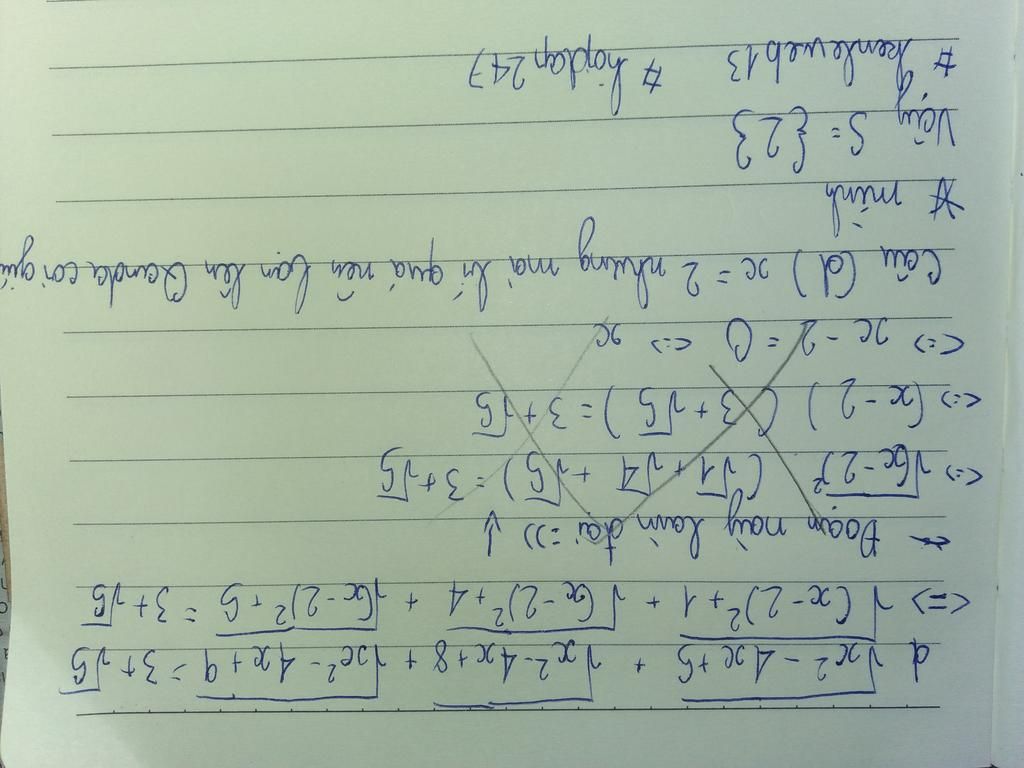 d √x² - 4x + 5 + √x² - 4x + 8 + √x² - 4x + 9 = 3 + √5
<=> √(x - 2)² + 1 + √(x - 2)² + 4 + √(x - 2)² + 5 = 3 + √5
← Đoạn này làm đại =>> ↓
<=> √(x - 2)² (√1 + √4 + √5) = 3 + √5
<=> (x - 2) (3 + √5) = 3 + √5
<=> x - 2 = 0 <=> x
Câu (d) x = 2 nhưng mà bí quá nên bạn lên Qanda coi giúp
* mình
Vậy S = {2}
# kenleweb13 # hoidap247